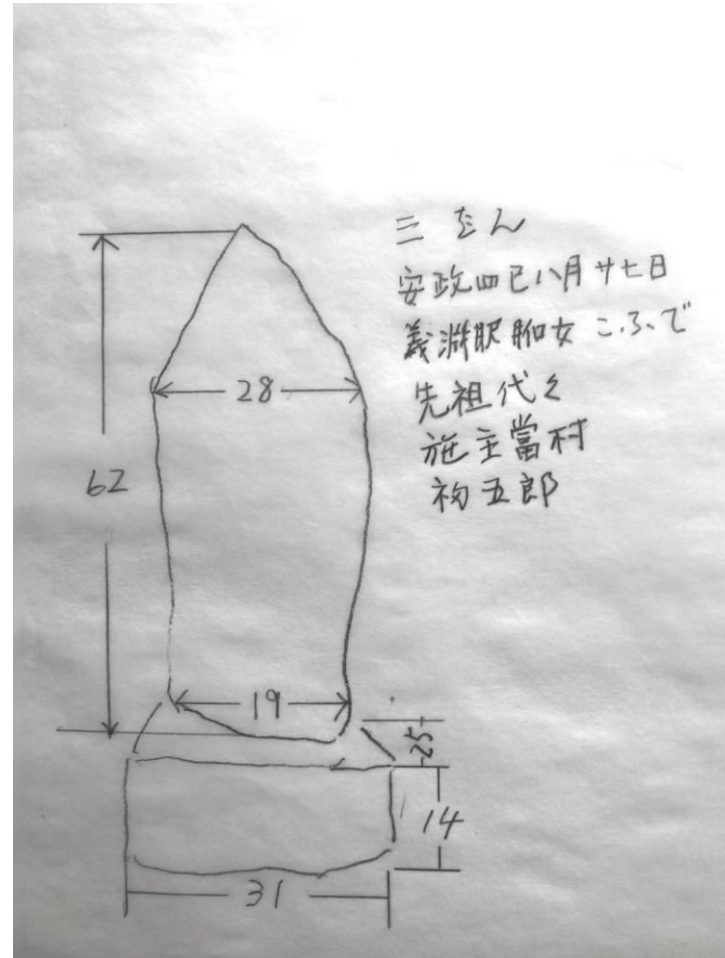 三 をん
安政四巳八月廿七日
義渊眠 女 こふで
先祖代々
施主當村
初五郎
62
28
19
25
14
31